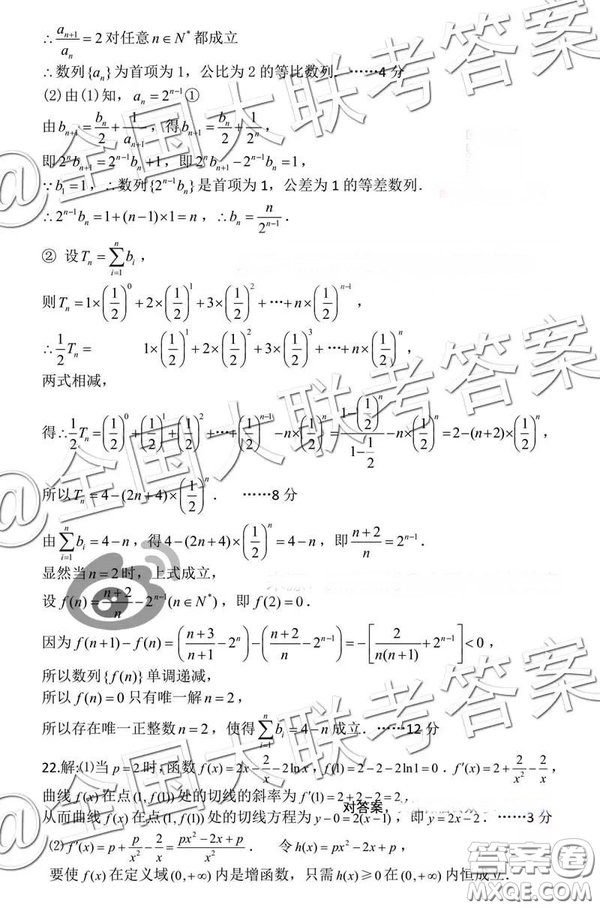 ∴ a_{n+1}/a_n = 2 对任意 n∈N* 都成立
∴数列{a_n}为首项为1，公比为2的等比数列．……4分
(2)由(1)知，a_n=2^{n-1}①
由b_{n+1}=b_n/2+1/a_{n+1}，得b_{n+1}=b_n/2+1/2^n，
即2^n b_{n+1}=2^{n-1}b_n+1，即2^n b_{n+1}-2^{n-1}b_n=1，
∵b_1=1，∴数列{2^{n-1}b_n}是首项为1，公差为1的等差数列．
∴2^{n-1}b_n=1+(n-1)×1=n，∴b_n=n/2^{n-1}．
② 设T_n=∑_{i=1}^{n}b_i，
则T_n=1×(1/2)^0+2×(1/2)^1+3×(1/2)^2+…+n×(1/2)^{n-1}，
∴1/2 T_n= 1×(1/2)^1+2×(1/2)^2+3×(1/2)^3+…+n×(1/2)^n，
两式相减，
得∴1/2 T_n=(1/2)^0+(1/2)^1+(1/2)^2+…+(1/2)^{n-1}-n×(1/2)^n=(1-(1/2)^n)/(1-1/2)-n×(1/2)^n=2-(n+2)×(1/2)^n，
所以T_n=4-(2n+4)×(1/2)^n． ……8分
由∑_{i=1}^{n}b_i=4-n，得4-(2n+4)×(1/2)^n=4-n，即(n+2)/n=2^{n-1}．
显然当n=2时，上式成立，
设f(n)=(n+2)/n-2^{n-1}(n∈N*)，即f(2)=0．
因为f(n+1)-f(n)=((n+3)/(n+1)-2^n)-((n+2)/n-2^{n-1})=-[2/(n(n+1))+2^{n-1}]<0，
所以数列{f(n)}单调递减，
所以f(n)=0只有唯一解n=2，
所以存在唯一正整数n=2，使得∑_{i=1}^{n}b_i=4-n成立．……12分
22.解:(1)当p=2时,函数f(x)=2x-2/x-2lnx,f(1)=2-2-2ln1=0．f'(x)=2+2/x^2-2/x，
曲线f(x)在点(1,f(1))处的切线的斜率为f'(1)=2+2-2=2，
从而曲线f(x)在点(1,f(1))处的切线方程为y-0=2(x-1)，即y=2x-2．……3分
对答案，
(2)f'(x)=p+p/x^2-2/x=(px^2-2x+p)/x^2． 令h(x)=px^2-2x+p，
要使f(x)在定义域(0,+∞)内是增函数，只需h(x)≥0在(0,+∞)内恒成立．
@全国大联考答案
@全国大联考答案
@全国大联考答案
答案卷